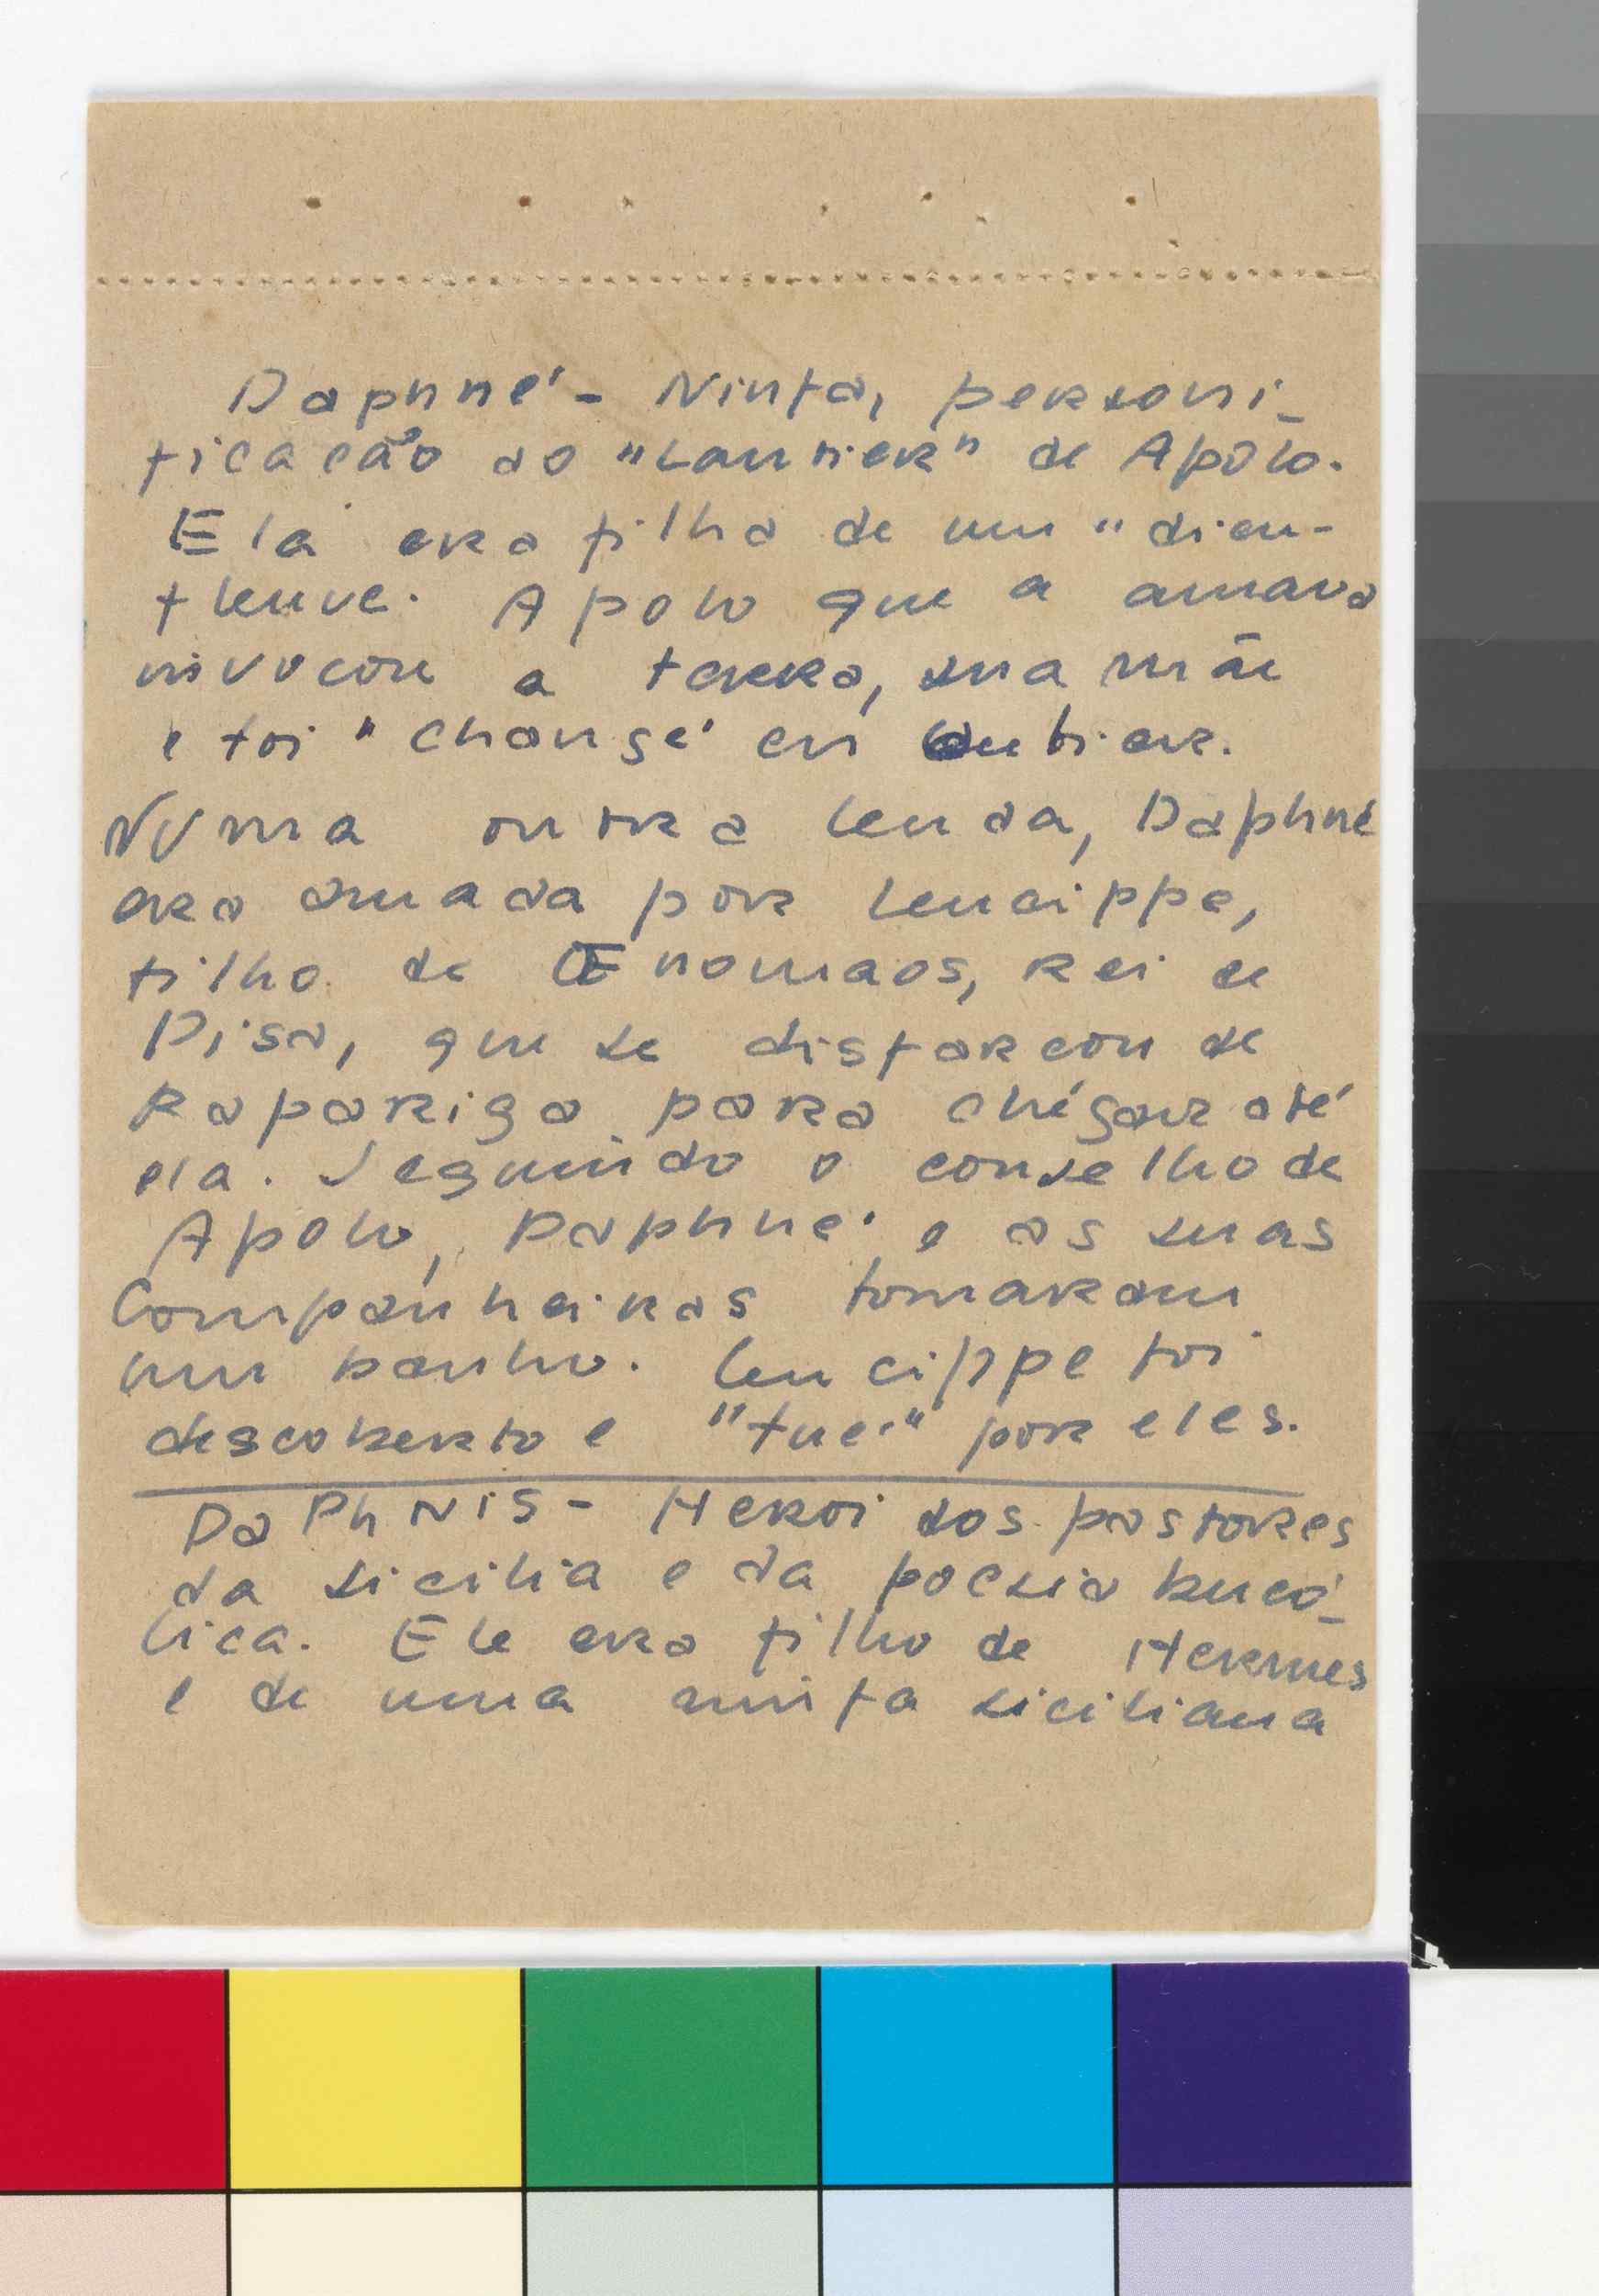 Daphné - Ninfa, personi-
ficacão do "Laurier" de Apolo.
Ela era filha de um "dieu-
fleuve. Apolo que a amava
invocou a terra, sua mãe
e foi "changé en
Numa outra lenda, Daphné
era amada por Leucippe,
filho de Œnomaos, rei de
Pisa, que se disfarcou de
Rapariga para chégar até
ela. Seguindo o conselho de
Apolo, Daphné e as suas
Companheiras tomaram
um banho. Leucippe foi
descoberto e "tué" por eles.
DaPhNiS - Heroi dos pastores
da sicilia e da poesia bucó-
lica. Ele era filho de Hermes
e de uma ninfa siciliana